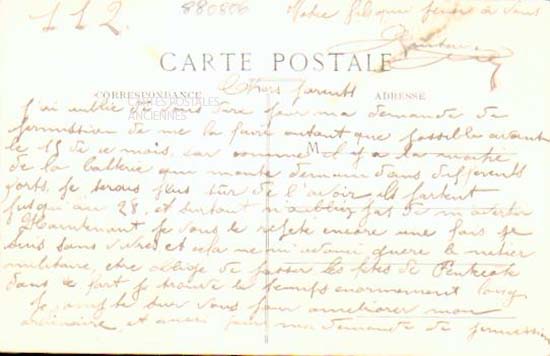 112.
880806
Votre fils qui pense à vous
CARTE POSTALE
CORRESPONDANCE
ADRESSE
CARTES POSTALES
ANCIENNES
Chers parents
J'ai oublié de vous dire pour ma demande de
permission de me la faire autant que possible avant
le 15 de ce mois, car comme il y a la moitié
M
de la batterie qui monte demain dans différents
forts. Je serais plus sûr de l'avoir ils partent
jusqu'au 28, et surtout n'oubliez pas de m'avertir
Maintenant je vous le répète encore une fois je
suis sans vivres et cela ne guère le métier
militaire, etre obligé de passer les fêtes de Pentecote
dans ce fort je trouve le temps enormement long
Je compte sur vous pour ameliorer mon
ordinaire, et aussi pour ma demande de permission